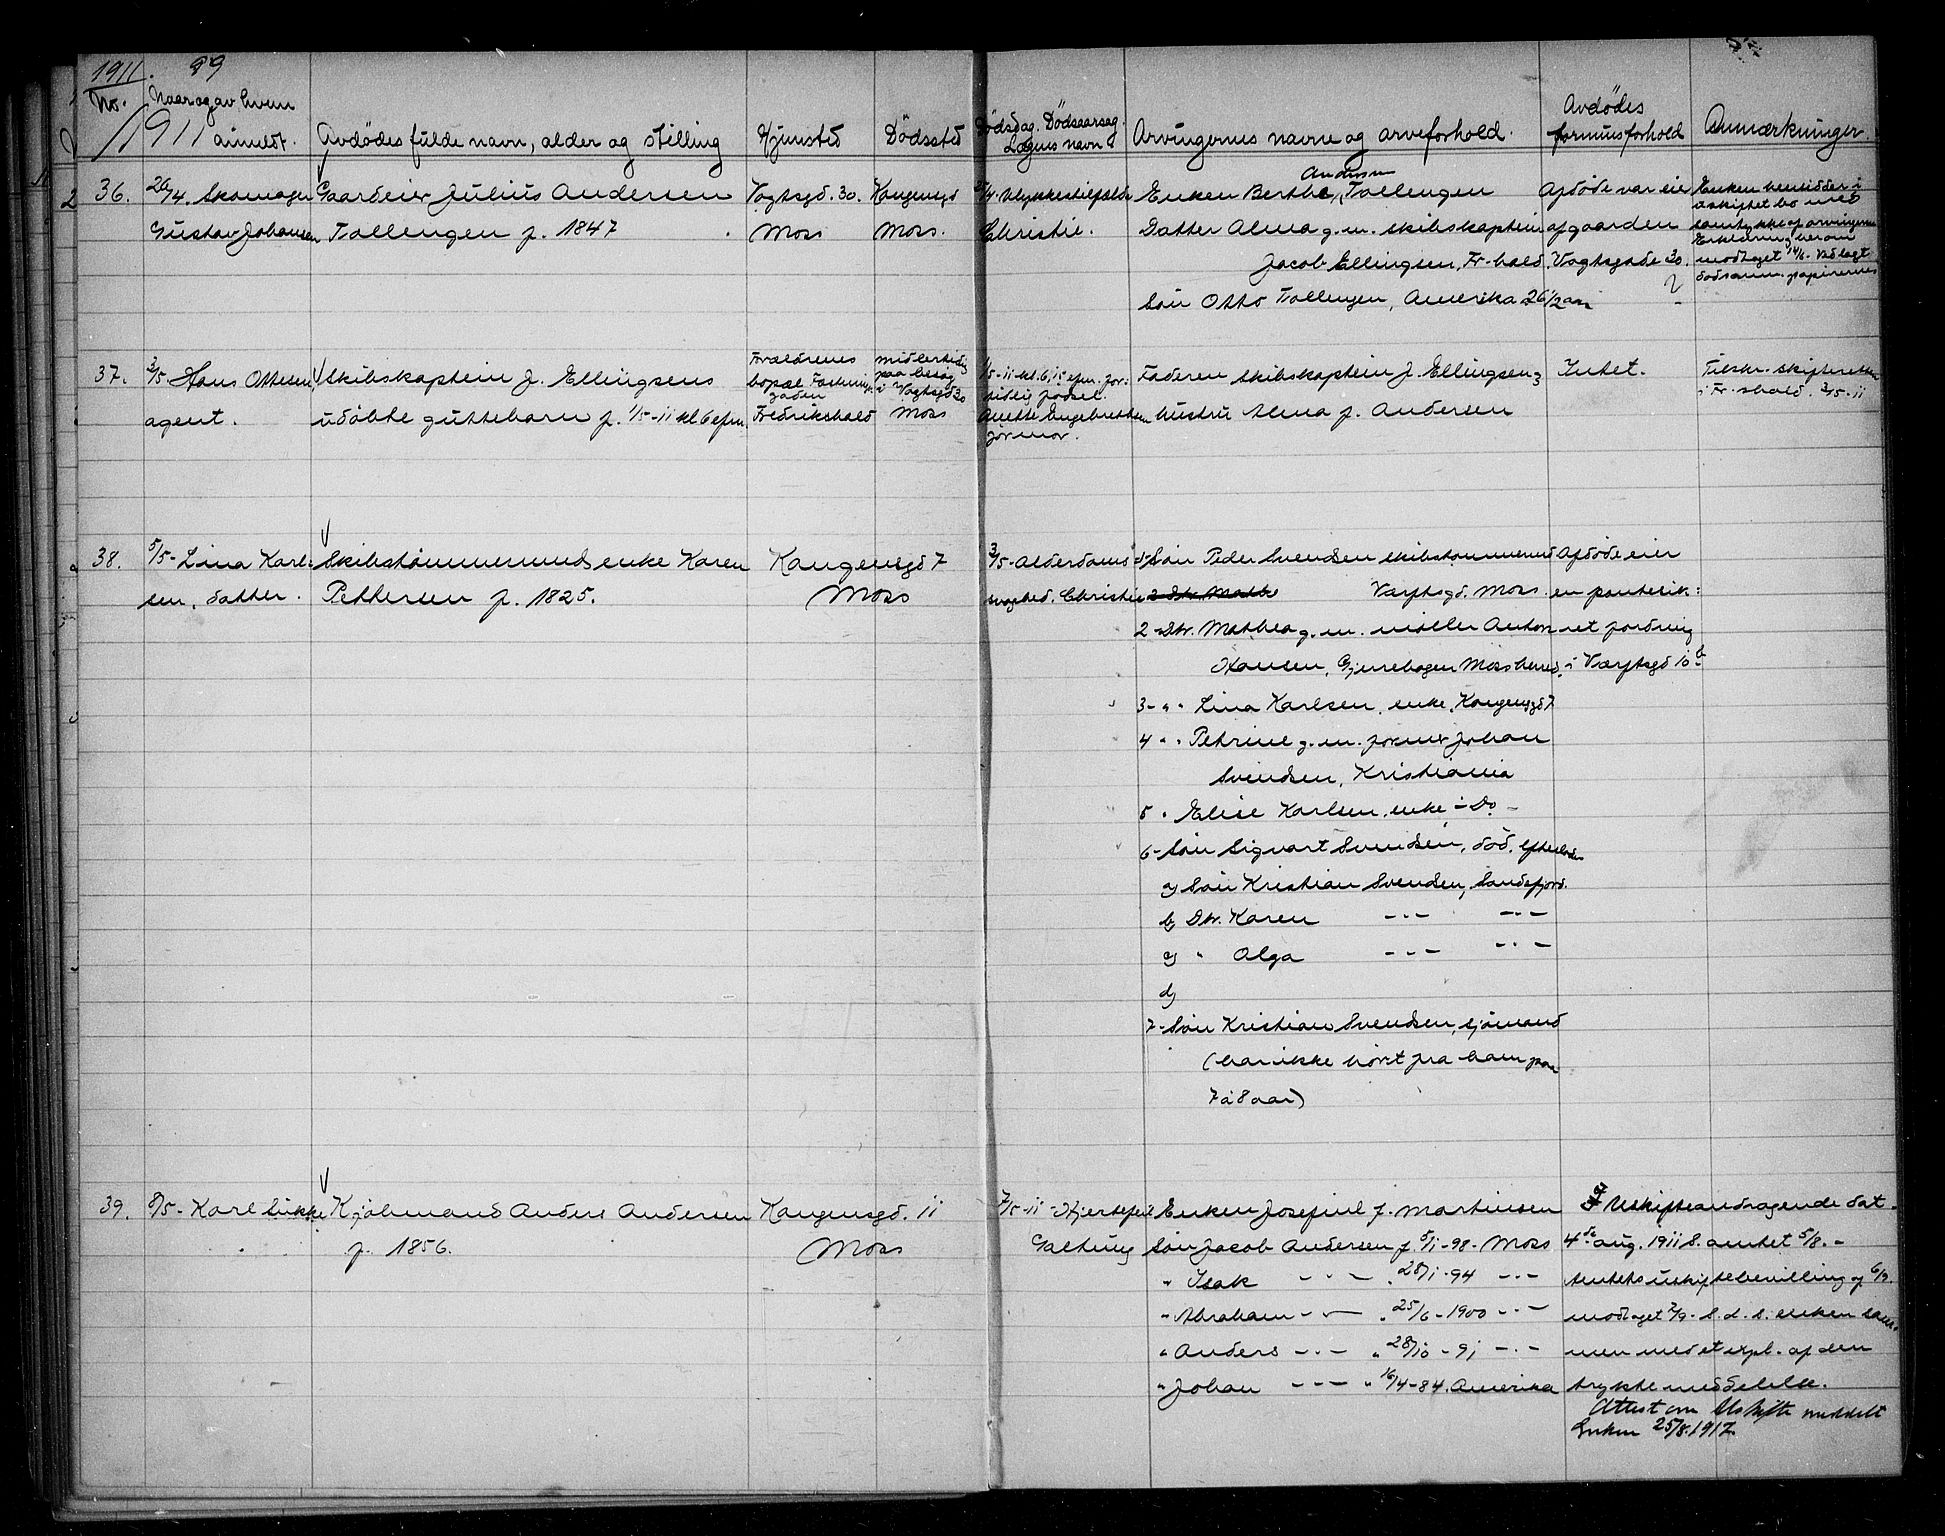 1911. 99
No. Naar og av hvem anmeldt.
1911
Avdödes fulde navn, alder og stilling
Hjemsted
Dödssted
Dödsdag. Dödsaarsag.
Lægens navn
Arvingernes navne og arveforhold.
Avdödes
formuesforhold
Anmærkninger
36. 20/4. Skomager
Gustav Johansen
Gaardeier Julius Andersen
Tollengen f. 1847
Vogtsgd. 30.
Moss
Kongensgd
Moss.
/4. Ulykkestilfælde
Christie.
Andersen
Enken Berthe, Tollengen
Datter Alma g. m. skibskaptein
Jacob Ellingsen, Fr-hald.
Sön Otto Tollengen, Amerika 26 1/2 aar
Afdöde var eier
af gaarden
Vogtsgade 30.
Enken hensidder i
uskiftet bo med
samtykke af arvingerne
Erklæring herom
modtaget 14/6. Vedlagt
dödsanm. papirerne
37. 3/5 Hans Ottesen
agent.
Skibskaptein J. Ellingsens
udöbte guttebarn f. 1/5-11 kl 6 efm.
Forældrenes
bopæl
gaden
Fredrikshald
midlertidig
paa besög
i Vogtsgd 30
Moss
1/5-11 kl. 6 1/2 efm. for-
tidlig födsel.
Anette Engebretsen
jormor.
Faderen Skibskaptein J. Ellingsen og
hustru Alma f. Andersen
Intet.
Tilskr. skifteretten
i Fr-shald. 3/5-11
38. 5/5- Lina Karl-
sen, datter.
Skibstömmermands enke Karen
Pettersen f. 1825.
Kongensgd 7
Moss
3/5- Alderdoms-
svaghed. Christie
1- Sön Peder Svendsen skibstömmermand
2 Dtr. Mathe
Værftsgd. Moss.
2- Dtr. Mathea g. m. möller Anton
Hansen, Gjerrebogen Moss herred.
3- " " Lina Karlsen, enke, Kongensgd 7
4 " " Petrine g. m. former Johan
Svendsen, Kristiania
5 " Elise Karlsen, enke - Do -
6- Sön Sigvart Svendsen, död, efterlader
a) Sön Kristian Svendsen, Sandefjord.
b) Dtr. Karen - " - - " -
c) " Olga - " - - " -
d)
7- Sön Kristian Svendsen, sjömand
(har ikke hört fra ham paa
7 à 8 aar)
Afdöde eier
en pantesik-
ret fordring
i Værftsgd 10 b
39. 8/5- Karl Lukke
Kjölmand Anders Andersen
f. 1856.
Kongensgd. 11
Moss
7/5-11- Hjertefeil
Galtung
Enken Josefine f. Martinsen
Sön Jacob Andersen f. 5/1-98- Moss
" Isak - " - " 28/1-94 - " -
" Abraham - " - " 25/6-1900 - " -
" Anders - " - " 28/10-91 - " -
" Johan - " - " 16/4-84. Amerika
Uskifteandragende dat.
4de aug. 1911 s. amtet 5/8. -
Amtets uskiftebevilling af 6/9.
modtaget 7/9. S. d. s. enken sam-
men med et expl. af den
trykte meddelelse.
Attest om Uskifte meddelt
Enken 25/8.1917.